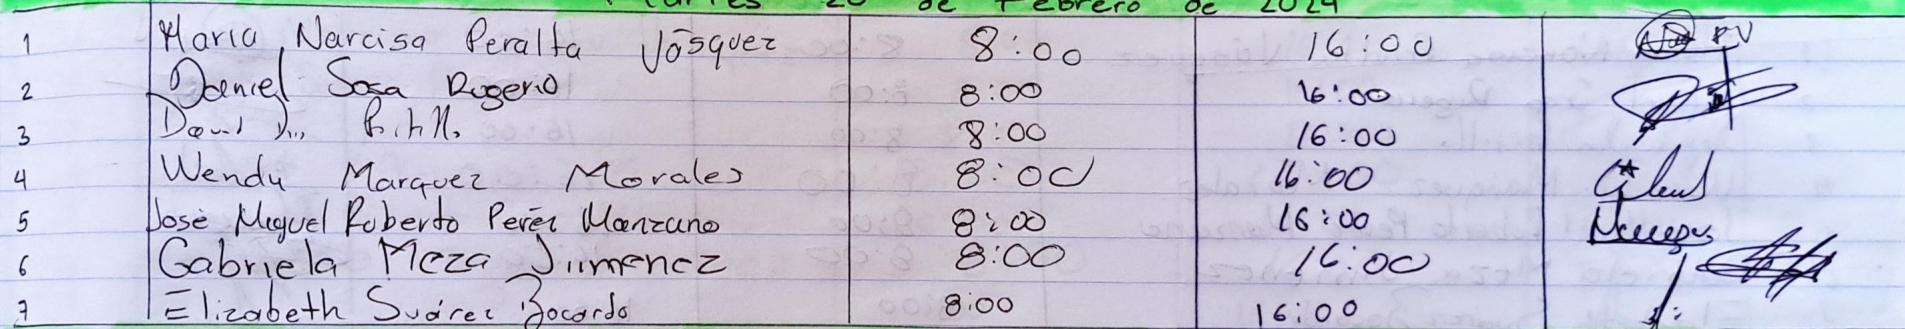 Martes 20 de Febrero de 2024
1 Maria Narcisa Peralta Vásquez 8:00 16:00
2 Daniel Sosa Rogerio 8:00 16:00
3 8:00 16:00
4 Wendy Marquez Morales 8:00 16:00
5 José Miguel Roberto Peréz Manzano 8:00 16:00
6 Gabriela Meza Jimenez 8:00 16:00
7 Elizabeth Suárez Bocardo 8:00 16:00